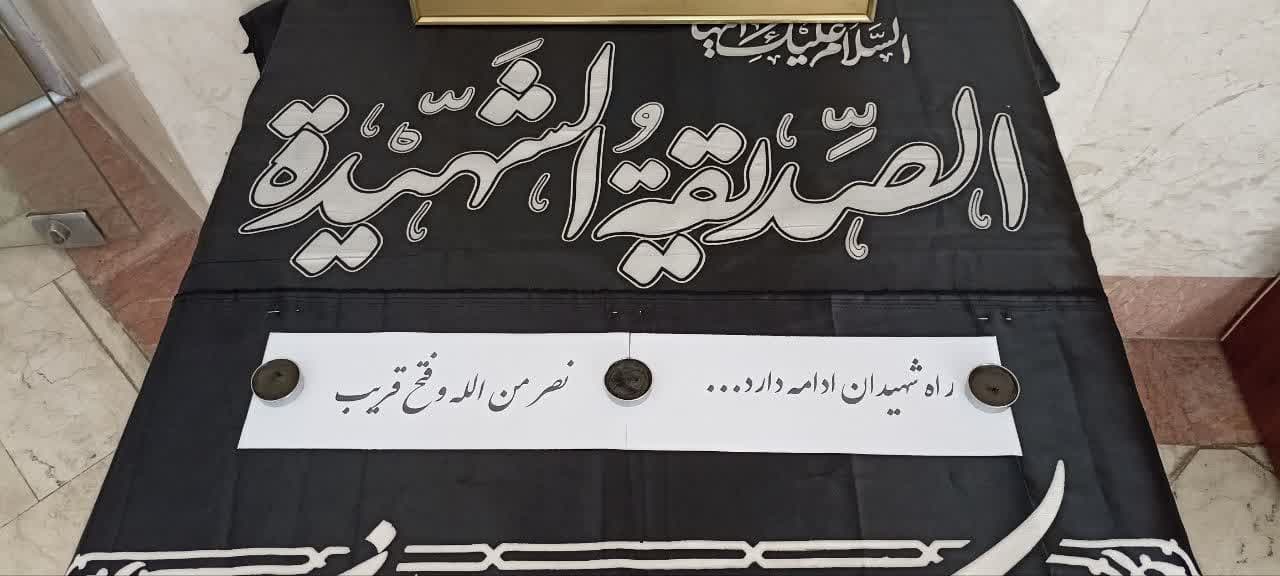 السلام عليك ايتها
الصِّدیقةُ الشَّهیدة
راه شهیدان ادامه دارد...
نصر من الله و فتح قریب